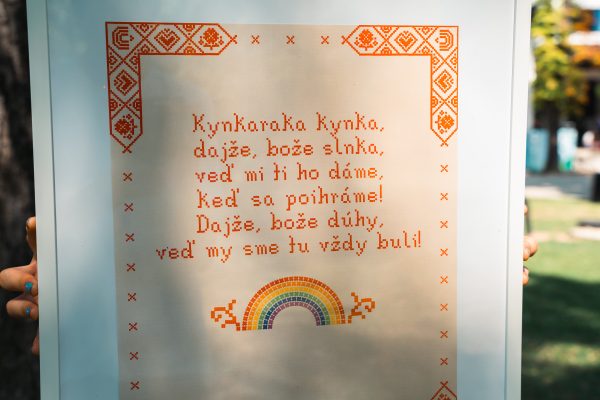 Kynkaraka kynka,
dajže, bože slnka,
veď mi ti ho dáme,
keď sa poihráme!
Dajže, bože dúhy,
veď my sme tu vždy buli!